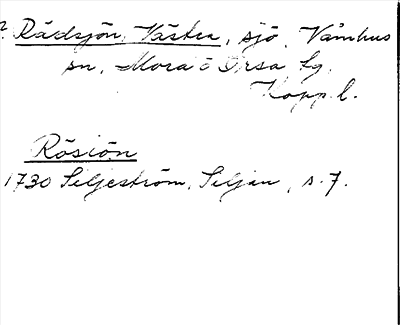 ? Rädsjön, Västra, sjö, Våmhus
sn, Mora o Orsa tg,
Kopp. l.
Rösiön
1730 Siljeström, Siljan, s. 7.